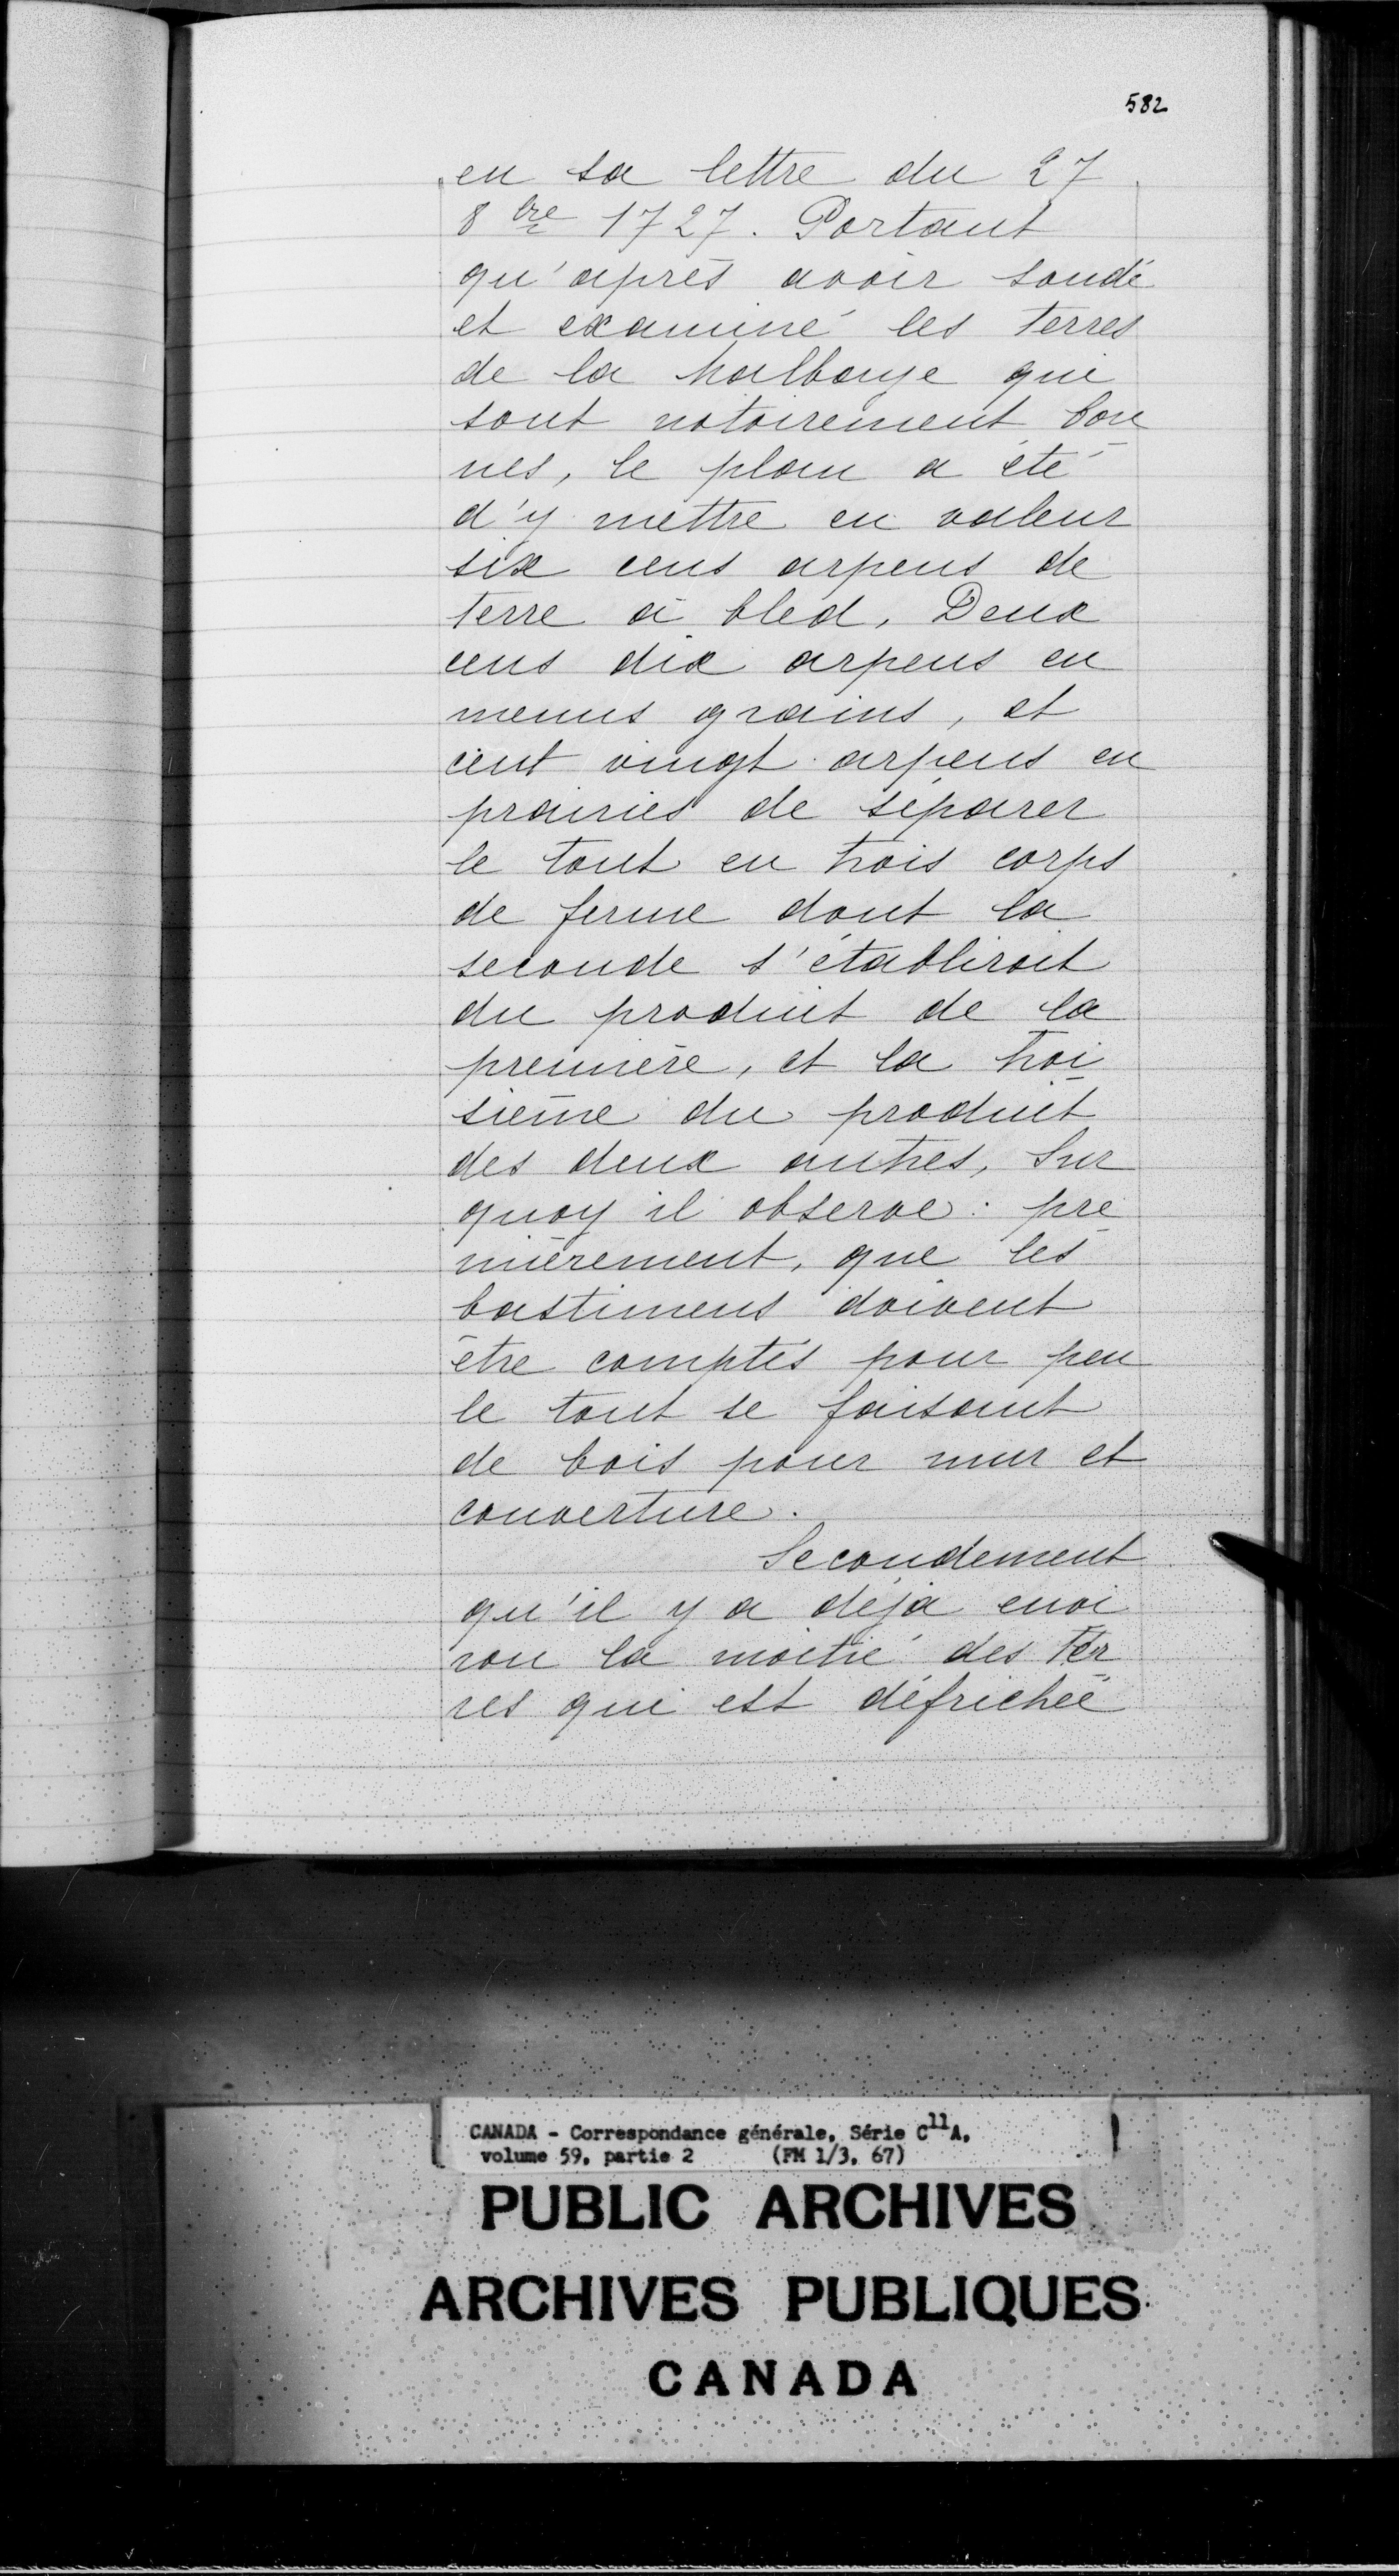 582
en sa lettre du 27
8bre 1727. Portant
qu'après avoir sondé
et examiné les terres
de la Malbaye qui
sont notoirement bon
nes, le plan a été
d'y mettre en valeur
six cens arpens de
terre à bled, Deux
cens dix arpens en
menus grains, et
cent vingt arpens en
prairies de séparer
le tout en trois corps
de ferme dont la
seconde s'établiroit
du produit de la
première, et la troi
sième du produit
des deux autres, Sur
quoy il observe: pre
mièrement, que les
bastimens doivent
être comptés pour peu
le tout se faisant
de bois pour mur et
couverture.
Secondement
qu'il y a déjà envi
ron la moitié des ter
res qui est défrichée
CANADA - Correspondance générale, Série C11A,
volume 59, partie 2 (FM 1/3, 67)
PUBLIC ARCHIVES
ARCHIVES PUBLIQUES
CANADA